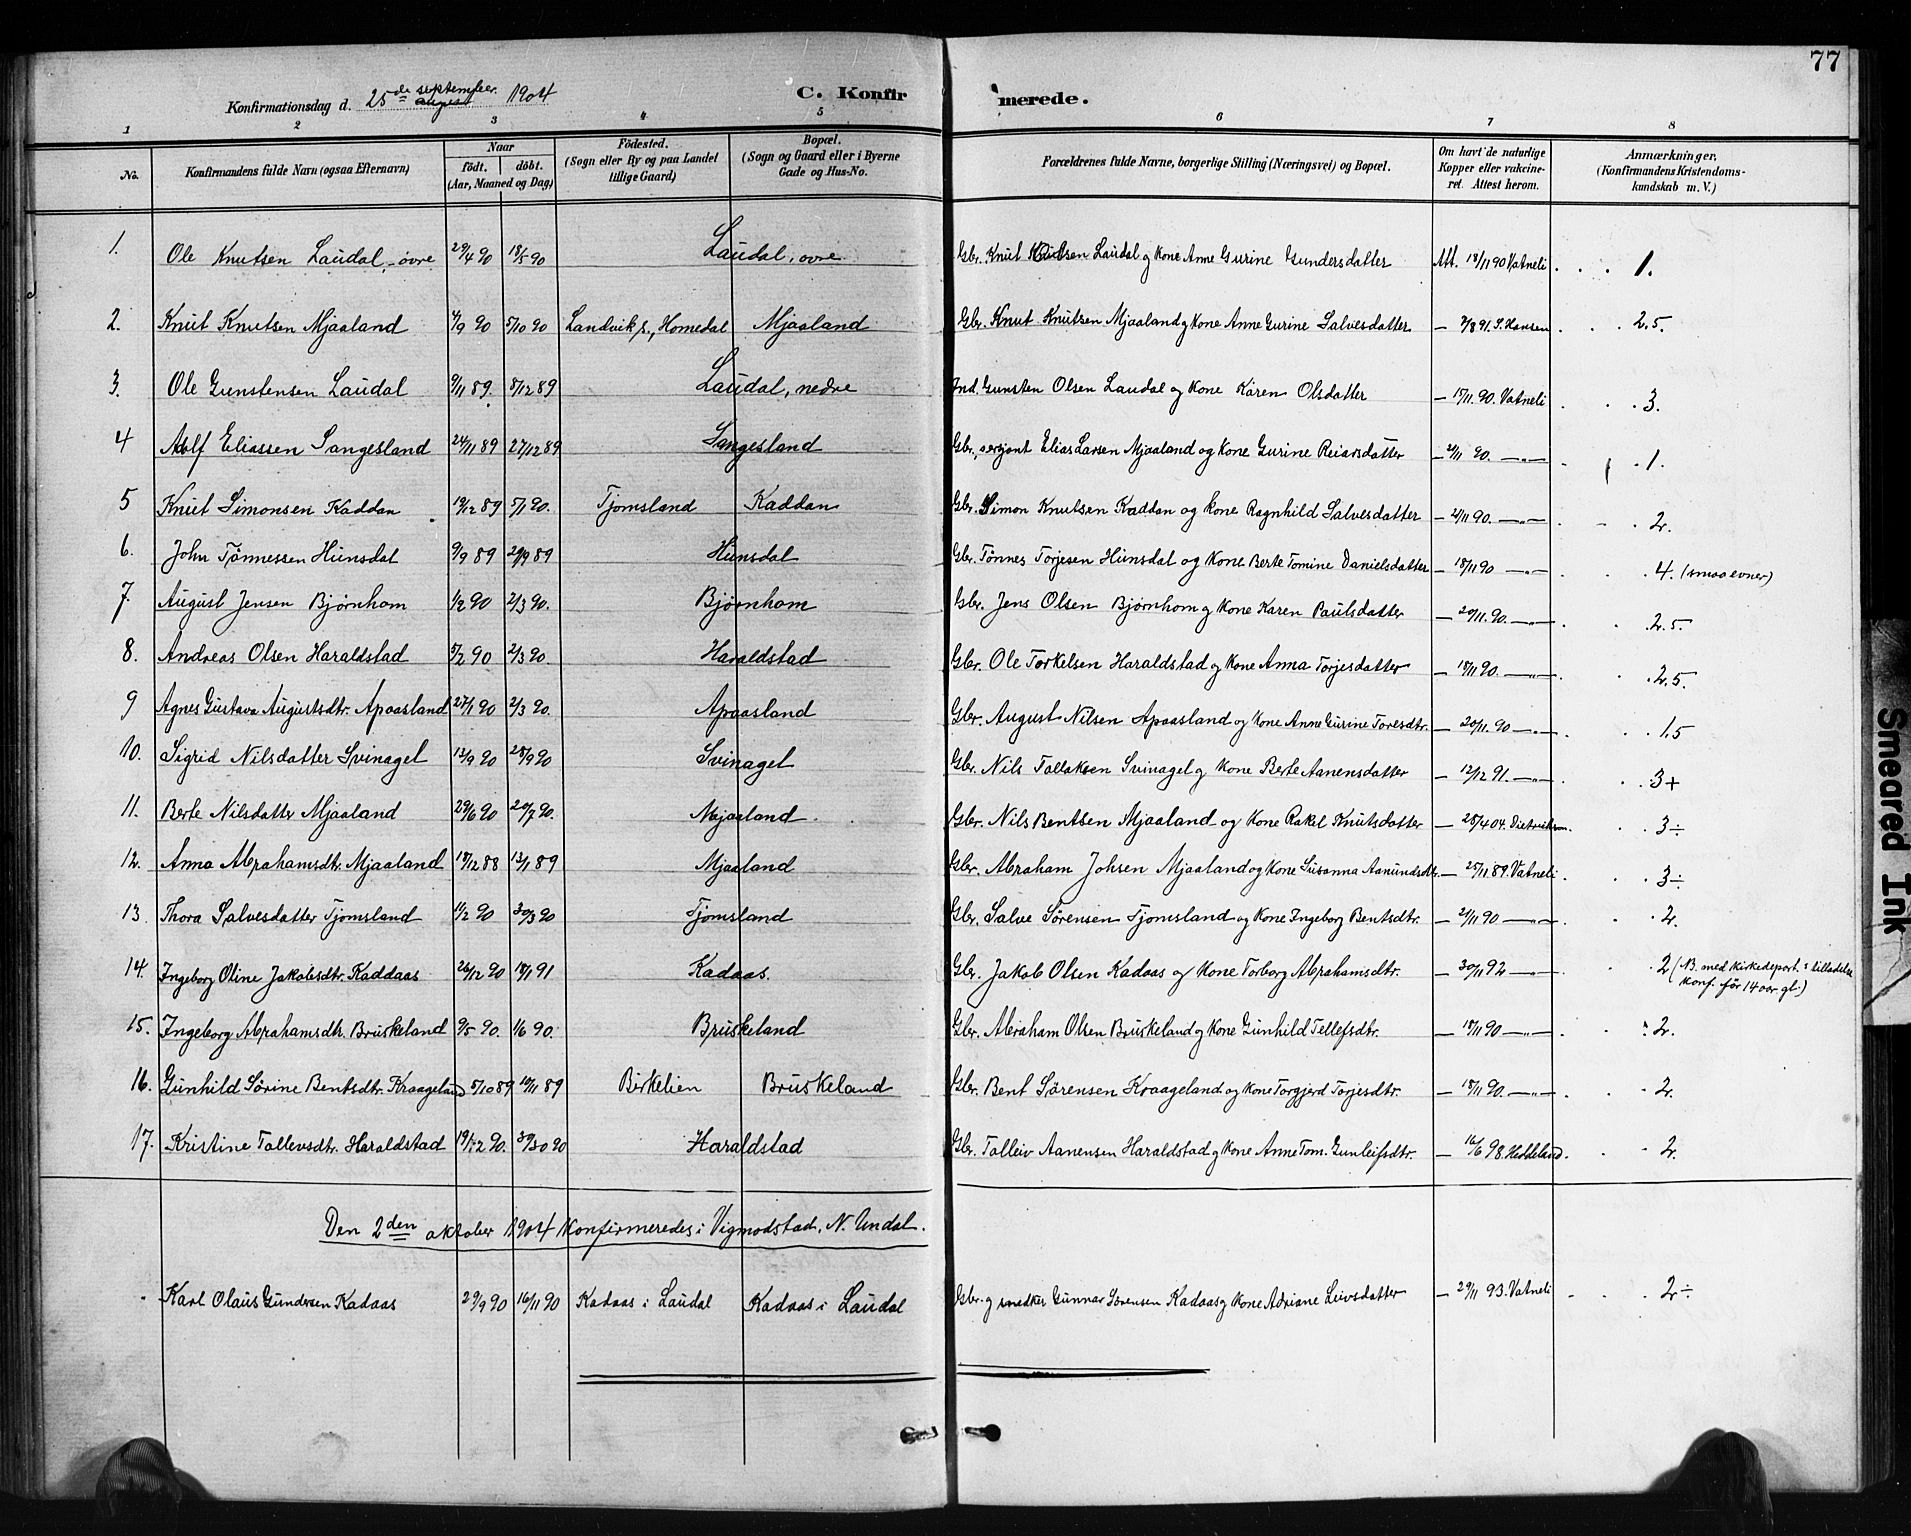 77
Konfirmationsdag d. 25de september 1904
august
C. Konfir merede.
1 2 3 4 5 6 7 8
No. Konfirmandens fulde Navn (ogsaa Efternavn) Naar født, døbt. (Aar, Maaned og Dag) Fødested. (Sogn eller By og paa Landet tillige Gaard) Bopæl. (Sogn og Gaard eller i Byerne Gade og Hus-No. Forældrenes fulde Navne, borgerlige Stilling (Næringsvei) og Bopæl. Om havt de naturlige Kopper eller vakcineret. Attest herom. Anmærkninger. (Konfirmandens Kristendomskundskab m. V.)
1. Ole Knutsen Laudal, øvre 29/4 90 18/5 90 Laudal, øvre Gbr. Knut Knutsen Laudal og Kone Anne Gurine Gundersdatter Att. 18/11 90 Vatneli 1.
2. Knut Knutsen Mjaaland 4/9 90 5/10 90 Landvik s., Homedal Mjaaland Gbr. Knut Knutsen Mjaaland og Kone Anne Gurine Salvesdatter — 7/8 91. S. Hansen 2.5.
3. Ole Gunstensen Laudal 9/11 89. 8/12 89 Laudal, nedre Ind. Gunsten Olsen Laudal og Kone Karen Olsdatter — 17/11. 90. Vatneli 3.
4 Adolf Eliassen Sangesland 24/11 89 27/12 89 Sangesland Gbr., serjant Elias Larsen Mjaaland og Kone Gurine Reiarsdatter — 21/11 90. —„— 1.
5 Knut Simonsen Kaddan 19/12 89 5/1 90. Tjomsland Kaddan Gbr. Simon Knutsen Kaddan og Kone Ragnhild Salvesdatter — 21/11 90. —„— 2.
6. John Tønnessen Hunsdal 9/9 89 29/9 89 Hunsdal Gbr. Tønnes Torjesen Hunsdal og Kone Berte Tomine Danielsdatter — 18/11 90 —„— 4. (smaa evner)
7. August Jensen Bjørnhom 1/2 90 2/3 90. Bjørnhom Gbr. Jens Olsen Bjørnhom og Kone Karen Paulsdatter — 20/11. 90. —„— 2.5.
8. Andreas Olsen Haraldstad 5/2 90 2/3 90. Haraldstad Gbr. Ole Torkelsen Haraldstad og Kone Anna Torjesdatter — 18/11 90. —„— 2.5.
9 Agnes Gustava Augustsdtr. Apaasland 27/1 90 2/3 90. Apaasland Gbr. August Nilsen Apaasland og Kone Anne Gurine Toresdtr. — 20/11. 90 —„— 1.5
10. Sigrid Nilsdatter Svinagel 13/9 90 28/9 90 Svinagel Gbr. Nils Tallaksen Svinagel og Kone Berte Aanensdatter — 12/12 91. —„— 3+
11. Berte Nilsdatter Mjaaland 29/6 90 20/7 90. Mjaaland Gbr. Nils Bentsen Mjaaland og Kone Rakel Knutsdatter — 28/4 04. Dietrichson. 3÷
12. Anna Abrahamsdtr. Mjaaland 18/12 88 13/1 89 Mjaaland Gbr. Abraham Johsen Mjaaland og Kone Susanna Aanundsdtr. — 25/11 89. Vatneli 3÷
13. Thora Salvesdatter Tjomsland 11/2 90 30/3 90 Tjomsland Gbr. Salve Sørensen Tjomsland og Kone Ingeborg Bentsdtr. — 21/11 90 —„— 2.
14. Ingeborg Oline Jakobsdtr. Kaddaas 26/12 90 18/1 91 Kadaas. Gbr. Jakob Olsen Kadaas og Kone Torborg Abrahamsdtr. — 30/11 92 —„— 2 (NB. med kirkedepart.s tilladelse konf. før 14 aar gl.)
15. Ingeborg Abrahamsdtr. Bruskeland 9/5 90. 1/6 90. Bruskeland Gbr. Abraham Olsen Bruskeland og Kone Gunhild Tellefsdtr. — 18/11 90 —„— 2.
16. Gunhild Sørine Bentsdtr. Kraageland 5/10 89 10/11 89 Birkelien Bruskeland Gbr. Bent Sørensen Kraageland og Kone Torgjerd Torjesdtr. — 18/11 90. —„— 2.
17. Kristine Tallevsdtr. Haraldstad Haraldstad Gbr. Talleiv Aanensen Haraldstad og Kone Anne Tom. Gunleifsdtr. — 16/6 98. Heddeland. 2.
Den 2den oktober 1904 konfirmeredes i Vigmodstad, N. Undal.
Karl Olaus Gundersen Kadaas 29/9 90 16/11 90 Kadaas i Laudal Kadaas i Laudal Gbr. og snedker Gunnar Sørensen Kadaas og Kone Adriane Leivsdatter — 29/11 93. Vatneli 2÷
Smeared Ink